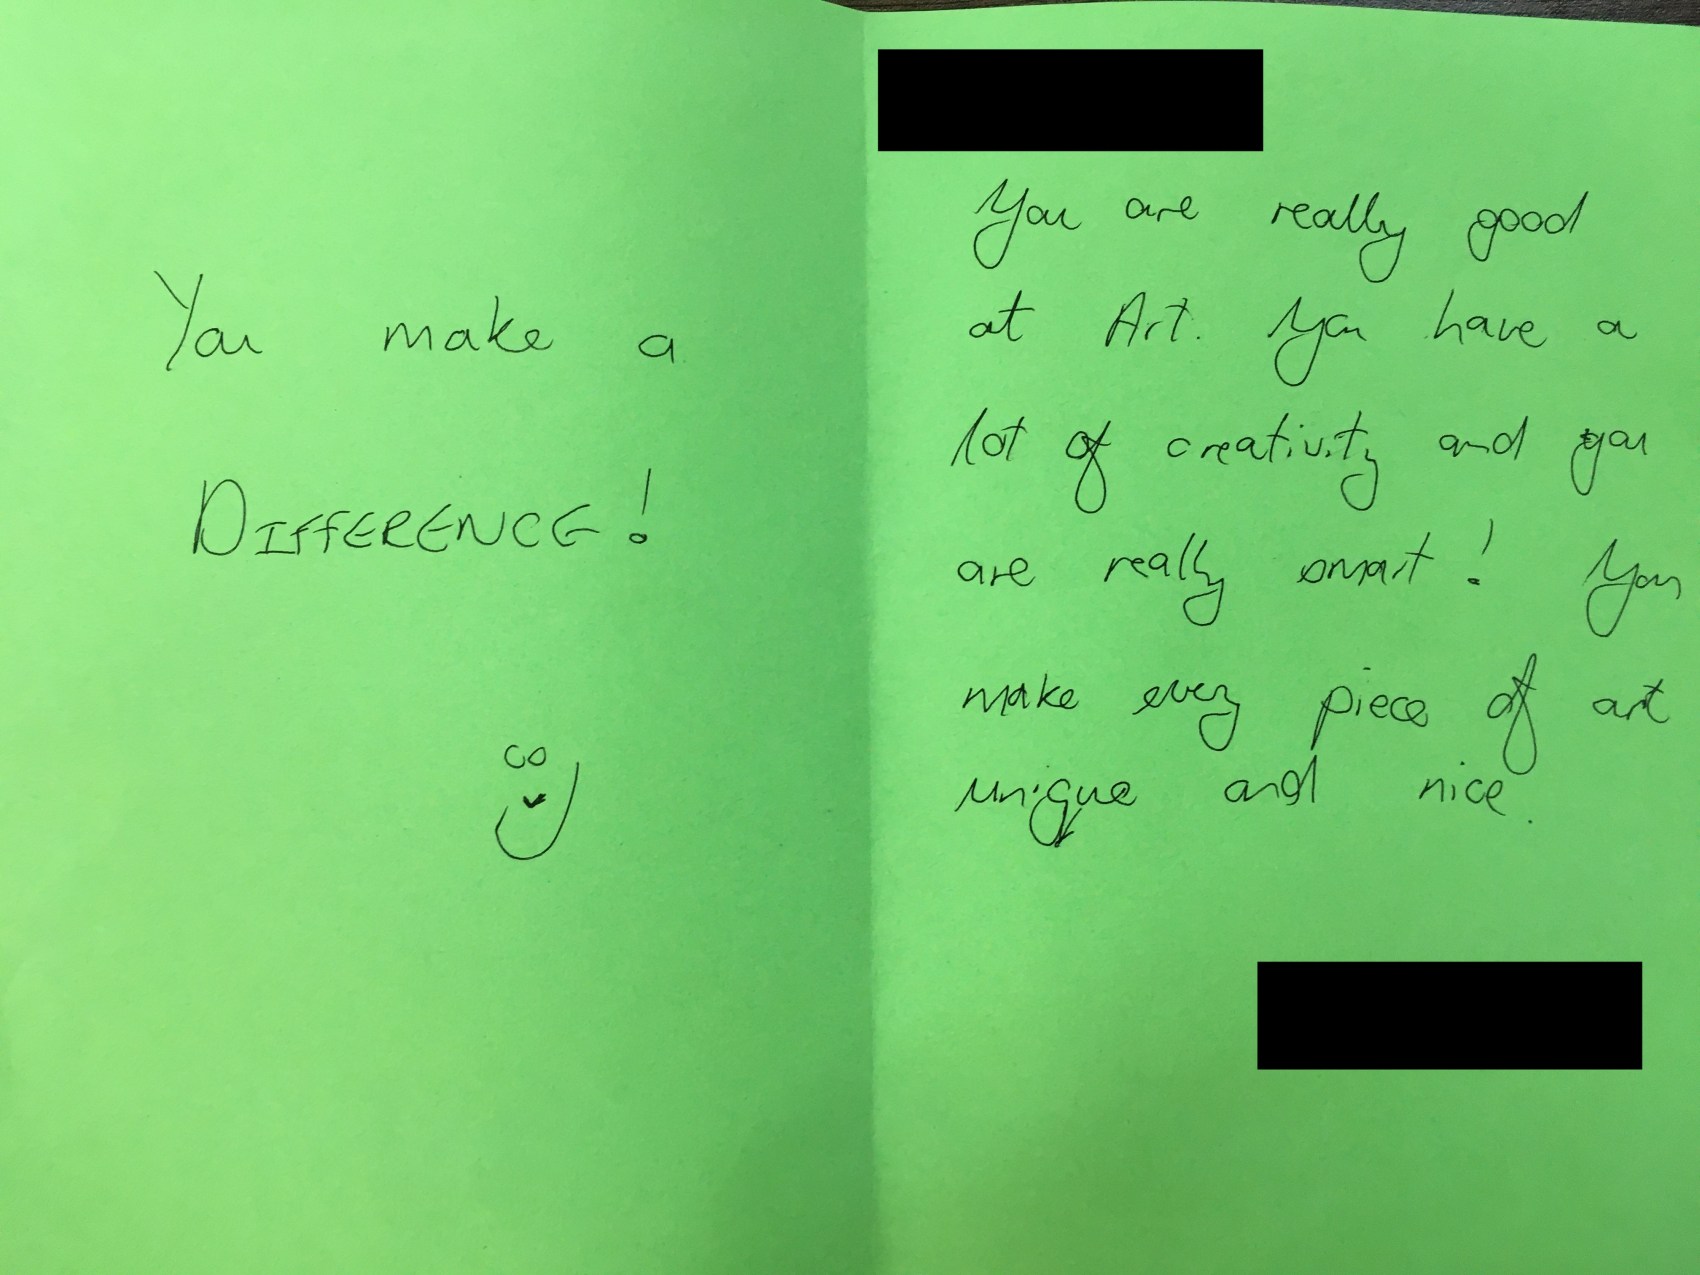 You make a
DIFFERENCE!
You are really good
at Art. You have a
lot of creativity and you
are really smart! You
make every piece of art
unique and nice.